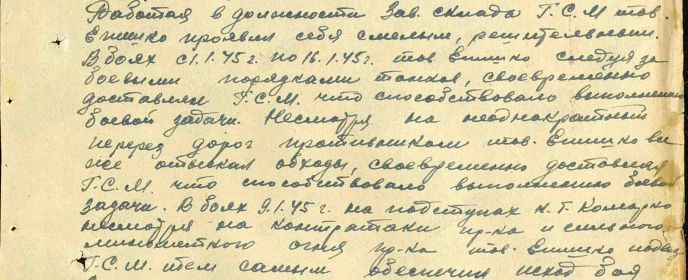 Работая в должности Зав. склада Г.С.М тов.
Епишко проявил себя смелым, решительным.
В боях с 1.1.45г. по 16.1.45г. тов Епишко следуя за
боевыми порядками танков, своевременно
доставлял Г.С.М. что способствовало выполнению
боевой задачи. Несмотря на неоднократный
перерез дорог противником тов. Епишко
же отыскал обходы, своевременно доставлял
Г.С.М. что способствовало выполнению боевой
задачи. В боях 9.1.45г. на подступах к. Г. Комарно
несмотря на контратаки пр-ка и сильного
минометного огня пр-ка тов. Епишко подвез
Г.С.М. тем самым обеспечил исход боя